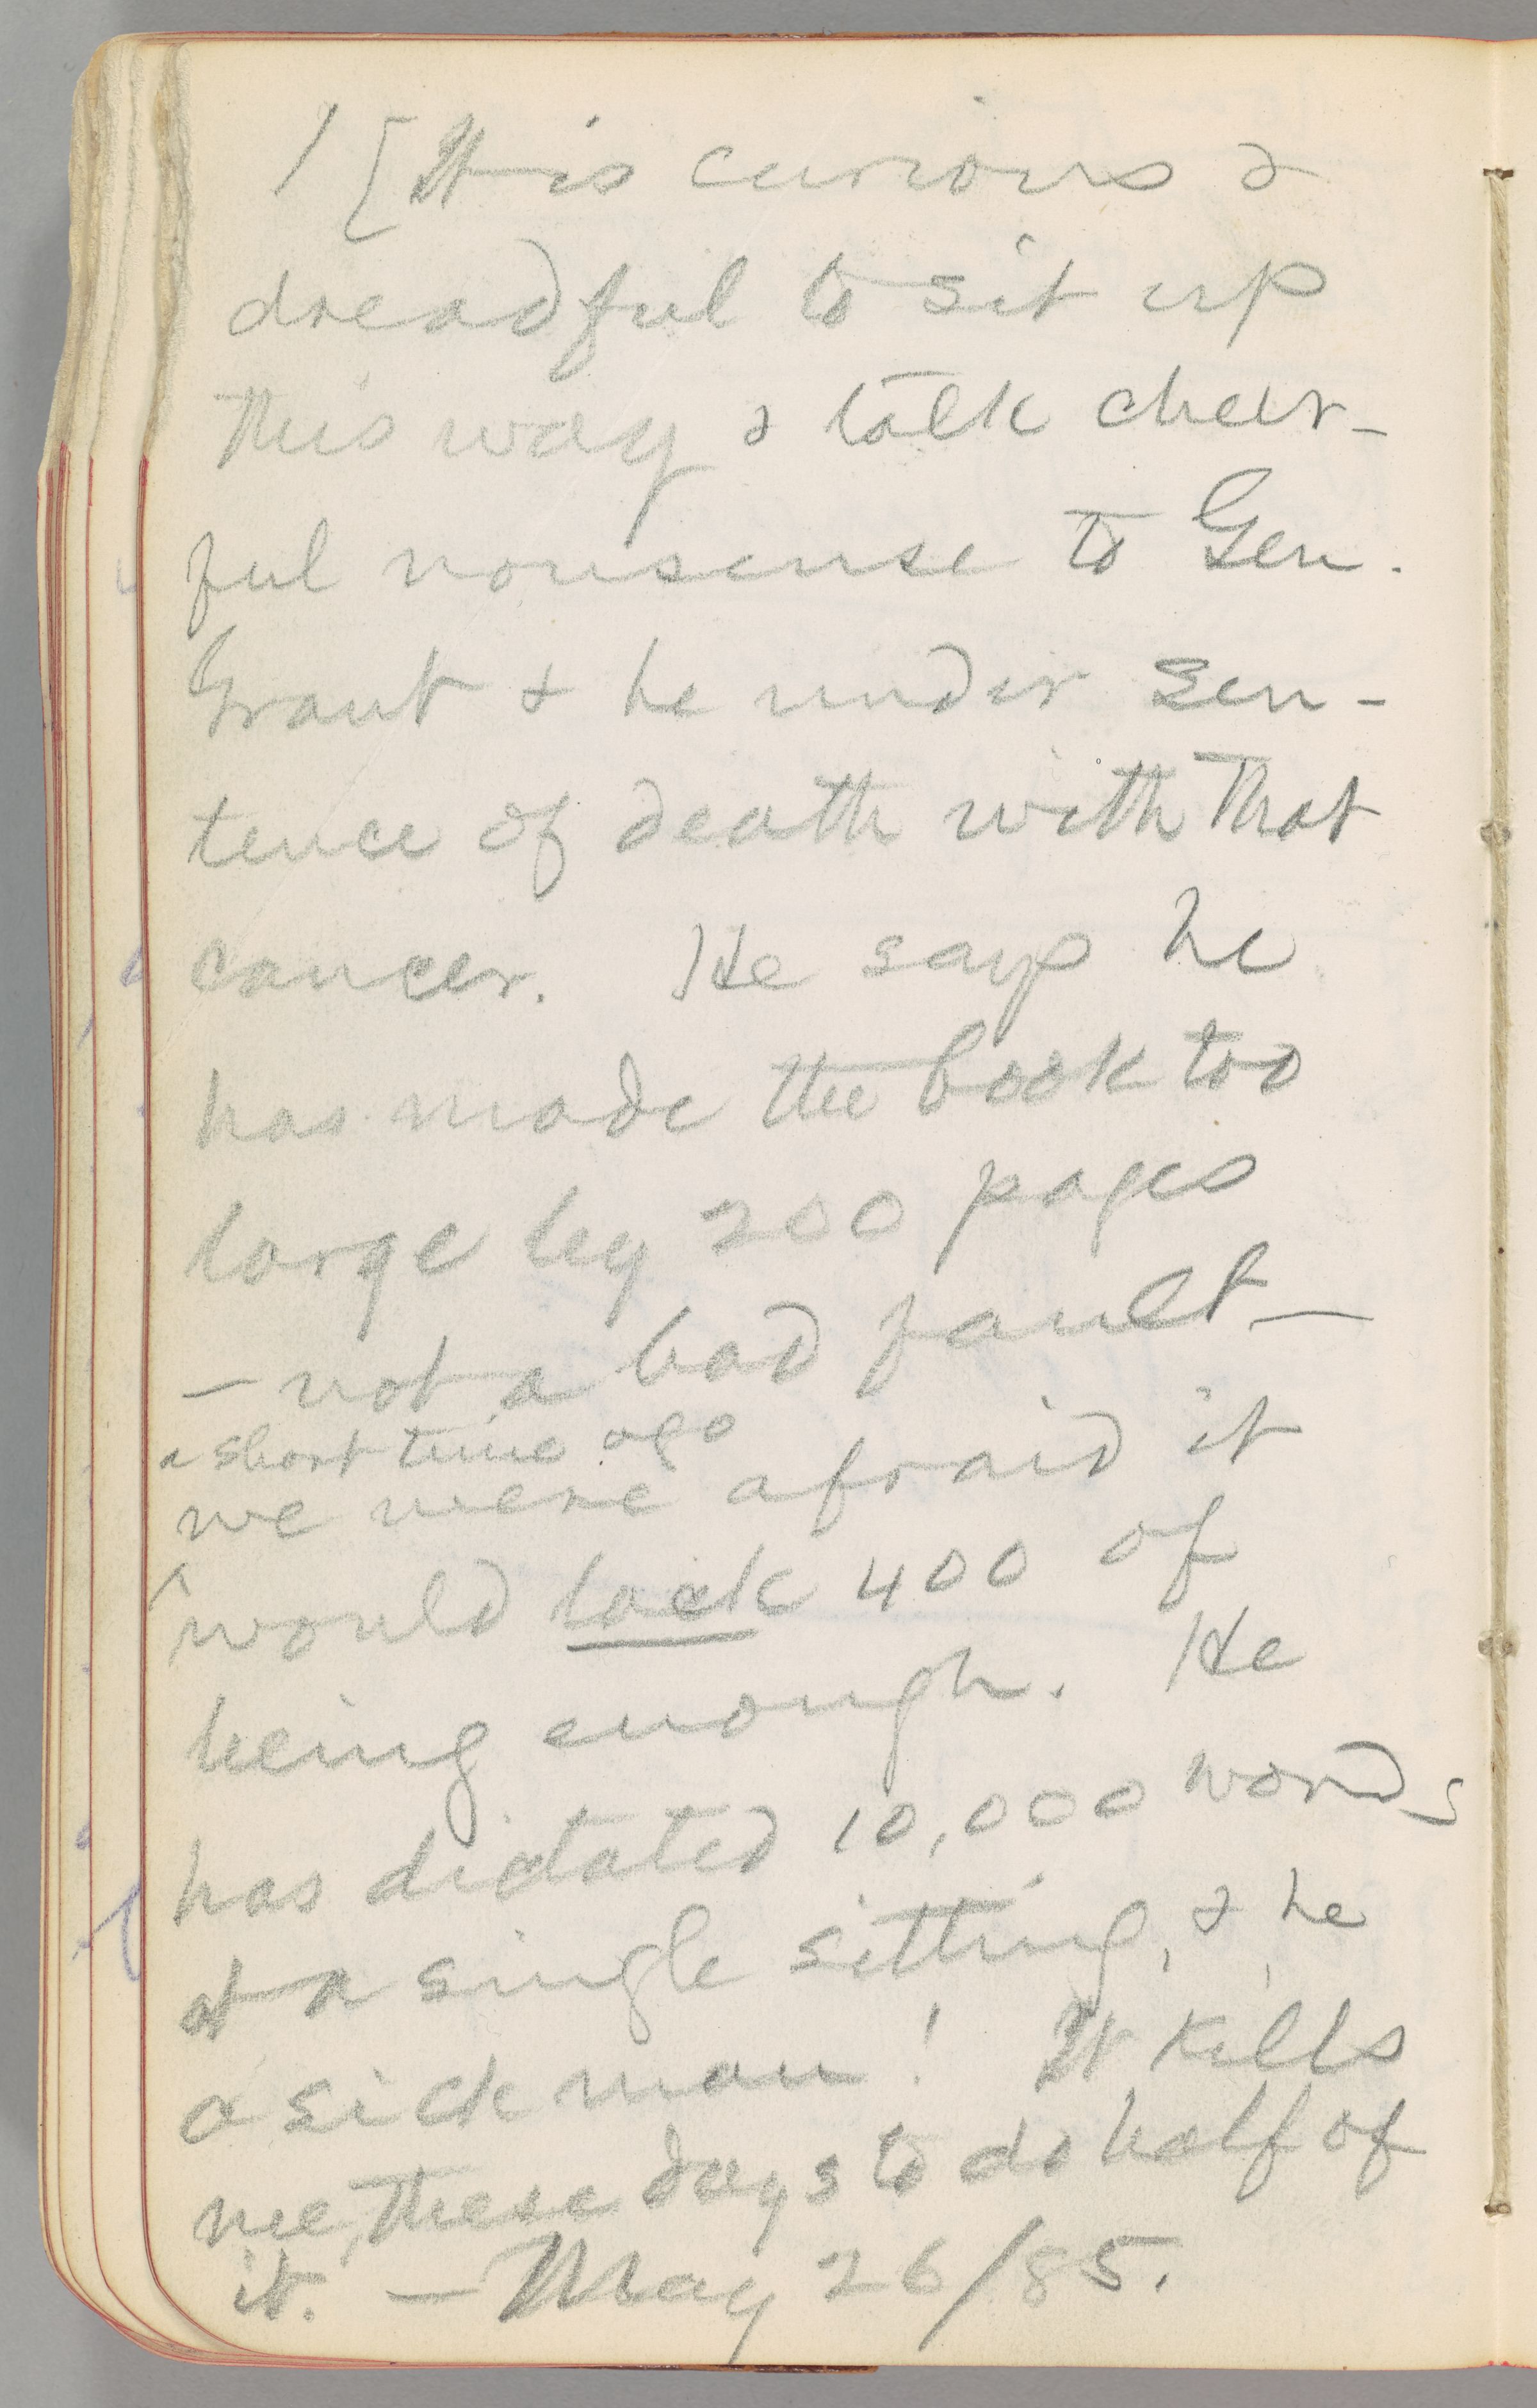 / [It is curious &
dreadful to sit up
this way & talk cheer-
ful nonsense to Gen.
Grant & he under sen-
tence of death with that
cancer. He says he
has made the book too
large by 200 pages
— not a bad fault —
a short time ago
we were afraid it
would lack 400 of
being enough. He
has dictated 10,000 words
at a single sitting, & he
a sick man! It kills
me, these days to do half of
it. — May 26/85.